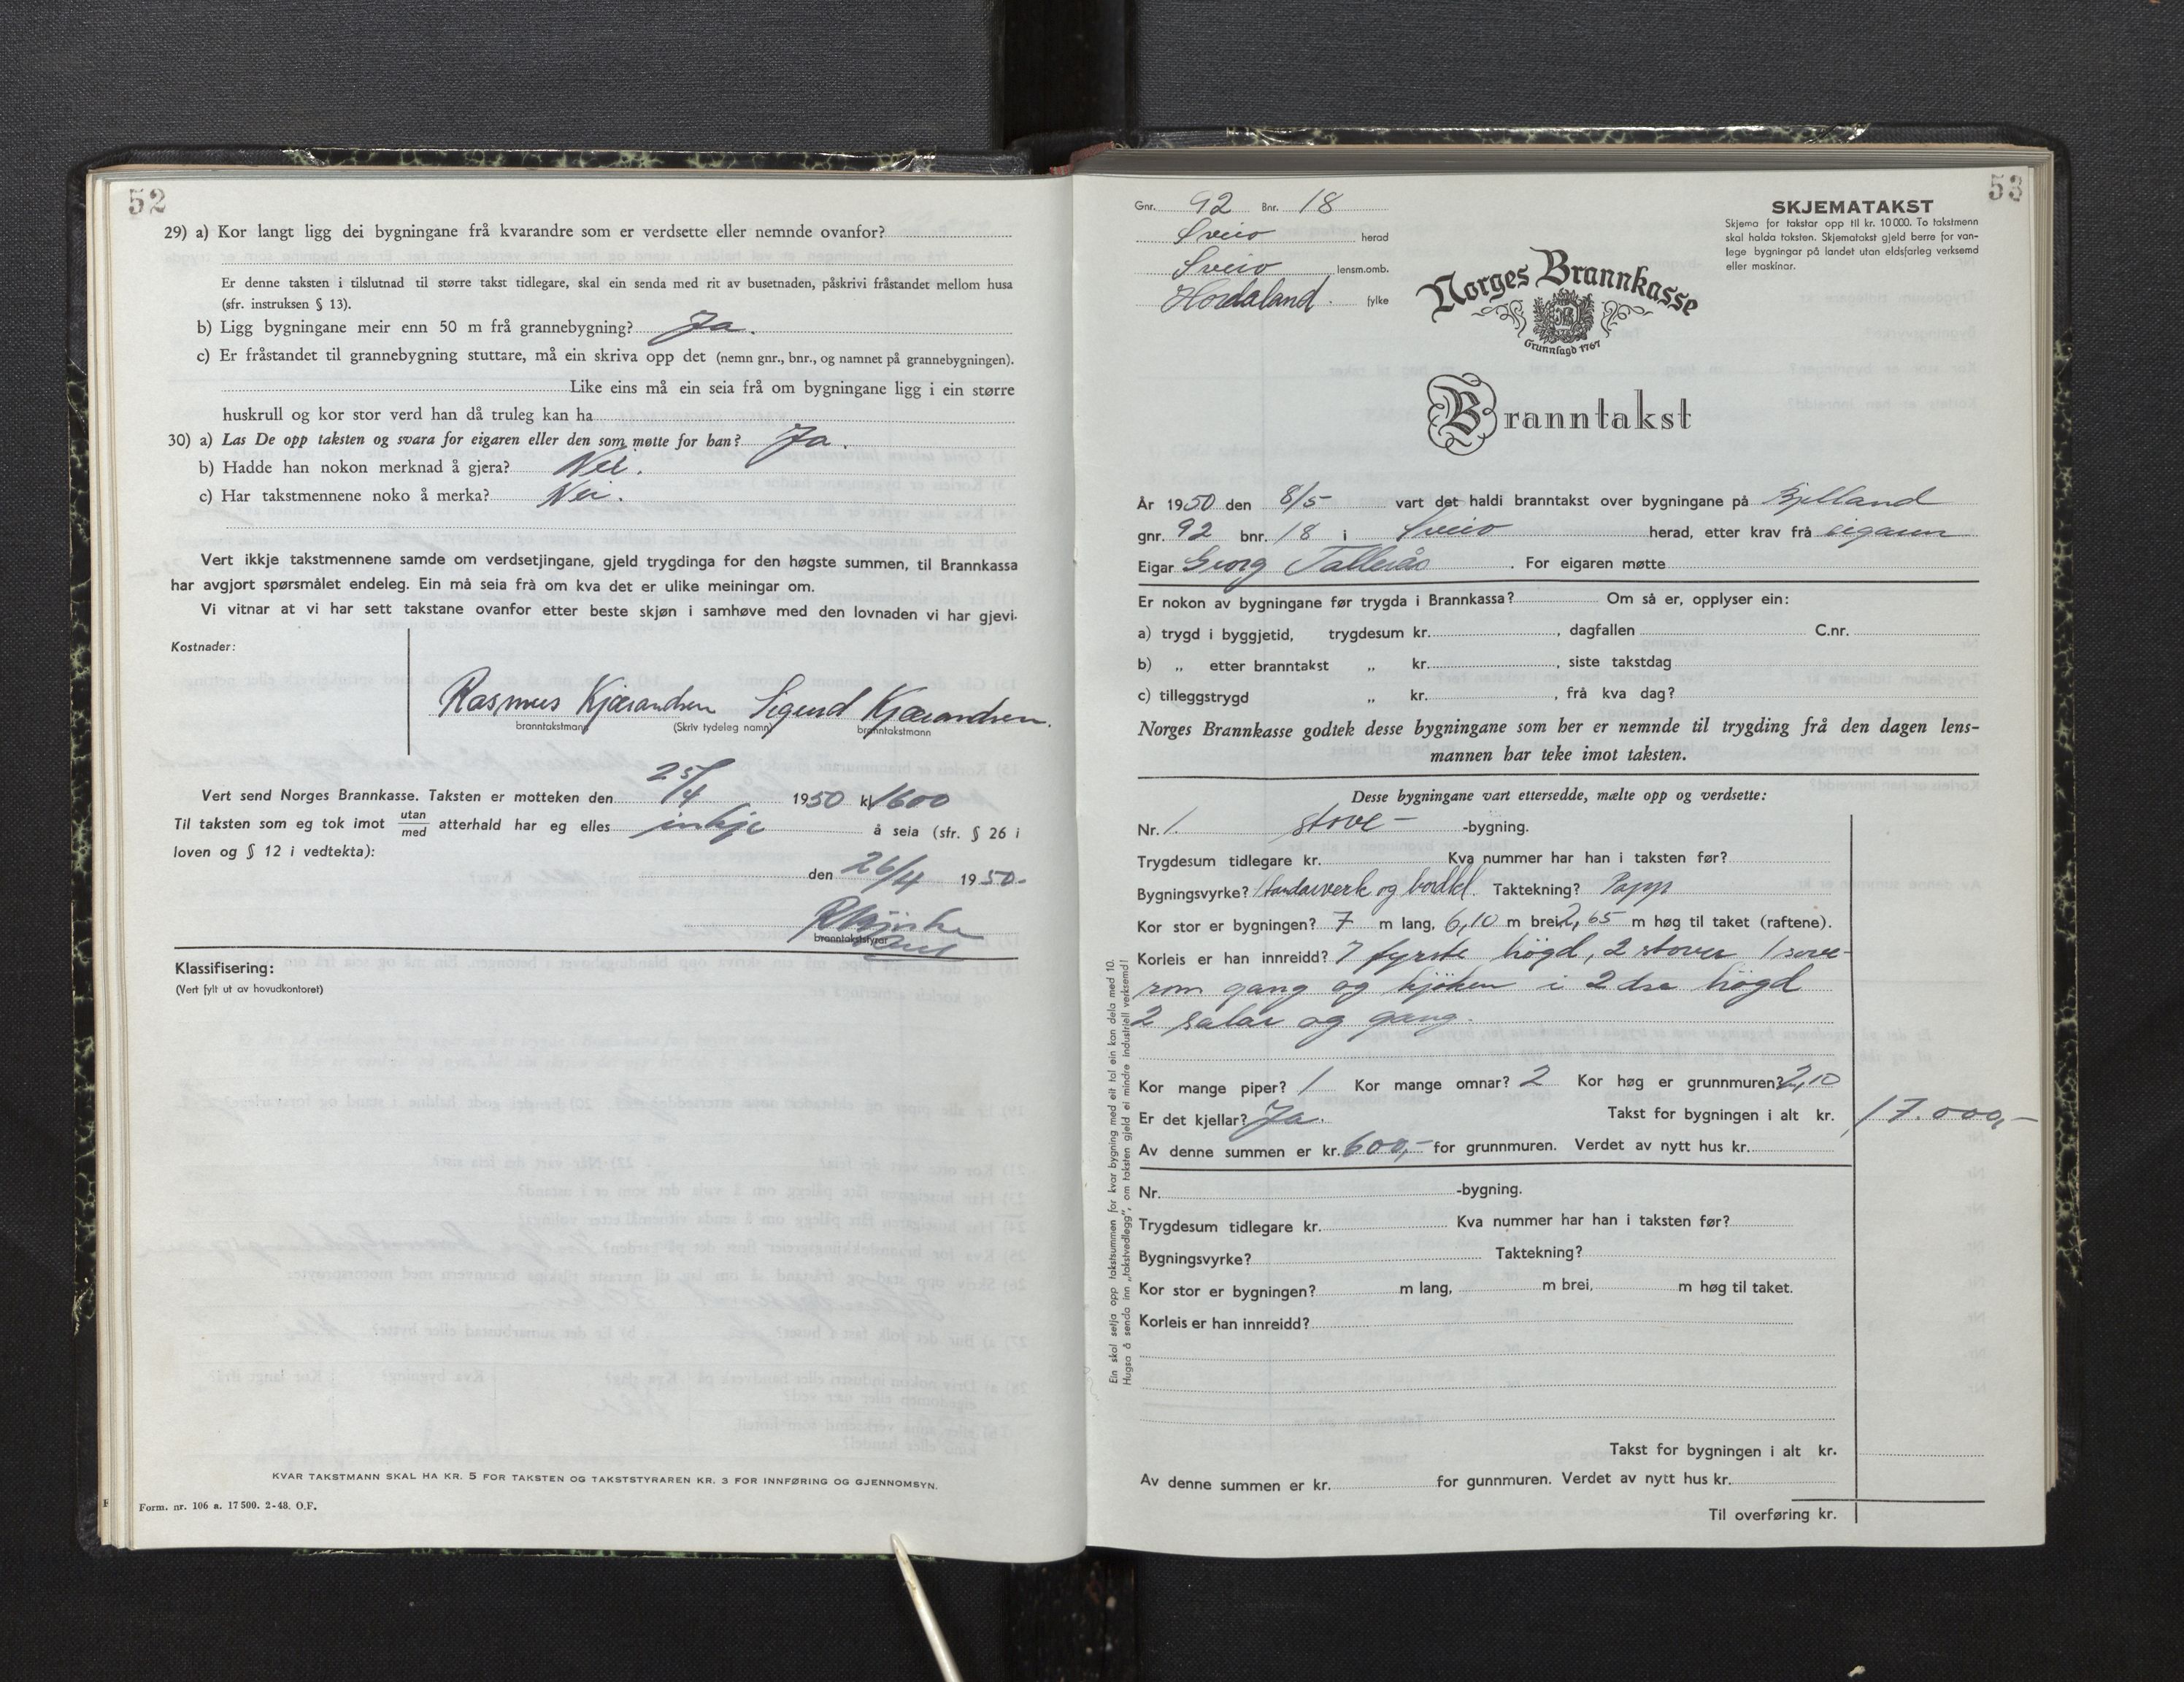 52
29) a) Kor langt ligg dei bygningane frå kvarandre som er verdsette eller nemnde ovanfor?
Er denne taksten i tilslutnad til større takst tidlegare, skal ein senda med rit av busetnaden, påskrivi fråstandet mellom husa
(sfr. instruksen § 13).
b) Ligg bygningane meir enn 50 m frå grannebygning? Ja.
c) Er fråstandet til grannebygning stuttare, må ein skriva opp det (nemn gnr., bnr., og namnet på grannebygningen).
Like eins må ein seia frå om bygningane ligg i ein større
huskrull og kor stor verd han då truleg kan ha
30) a) Las De opp taksten og svara for eigaren eller den som møtte for han? Ja.
b) Hadde han nokon merknad å gjera? Nei.
c) Har takstmennene noko å merka? Nei.
Vert ikkje takstmennene samde om verdsetjingane, gjeld trygdinga for den høgste summen, til Brannkassa
har avgjort spørsmålet endeleg. Ein må seia frå om kva det er ulike meiningar om.
Vi vitnar at vi har sett takstane ovanfor etter beste skjøn i samhøve med den lovnaden vi har gjevi.
Kostnader:
Rasmus Kjærandsen Sigurd Kjærandsen.
branntakstmann (Skriv tydeleg namn) branntakstmann
Vert send Norges Brannkasse. Taksten er motteken den 25/4 1950 kl. 1600
Til taksten som eg tok imot utan/med atterhald har eg elles inkje å seia (sfr. § 26 i
loven og § 12 i vedtekta):
den 26/4 1950.
branntakststyrar
Klassifisering:
(Vert fylt ut av hovudkontoret)
KVAR TAKSTMANN SKAL HA KR. 5 FOR TAKSTEN OG TAKSTSTYRAREN KR. 3 FOR INNFØRING OG GJENNOMSYN.
Form. nr. 106 a. 17 500. 2-48. O.F.
53
Gnr. 92 Bnr. 18
Sveio herad
Sveio lensm.omb.
Hordaland. fylke
SKJEMATAKST
Skjema for takstar opp til kr. 10 000. To takstmenn
skal halda taksten. Skjematakst gjeld berre for van-
lege bygningar på landet utan eldsfarleg verksemd
eller maskinar.
Norges Brannkasse
Grunnlagd 1767
Branntakst
År 1950 den 8/5 vart det haldi branntakst over bygningane på Bjelland
gnr. 92 bnr. 18 i Sveio herad, etter krav frå eigaren
Eigar Georg Tallerås. For eigaren møtte
Er nokon av bygningane før trygda i Brannkassa? Om så er, opplyser ein:
a) trygd i byggjetid, trygdesum kr. , dagfallen C.nr.
b) „ etter branntakst „ kr. , siste takstdag
c) tilleggstrygd „ kr. , frå kva dag?
Norges Brannkasse godtek desse bygningane som her er nemnde til trygding frå den dagen lens-
mannen har teke imot taksten.
Desse bygningane vart ettersedde, mælte opp og verdsette:
Nr. 1. stove- -bygning.
Trygdesum tidlegare kr. Kva nummer har han i taksten før?
Bygningsvyrke? Standarverk og bordkl. Taktekning? Papp
Kor stor er bygningen? 7 m lang, 6,10 m brei, 2,65 m høg til taket (raftene).
Korleis er han innreidd? I fyrste högd, 2 stover 1 sove-
rom gang og kjöken i 2 dre högd
2 salar og gang.
Kor mange piper? 1 Kor mange omnar? 2 Kor høg er grunnmuren? 2,10
Er det kjellar? Ja. Takst for bygningen i alt kr. 17.000,-
Av denne summen er kr. 600,- for grunnmuren. Verdet av nytt hus kr.
Nr. -bygning.
Trygdesum tidlegare kr. Kva nummer har han i taksten før?
Bygningsvyrke? Taktekning?
Kor stor er bygningen? m lang, m brei, m høg til taket.
Korleis er han innreidd?
Takst for bygningen i alt kr.
Av denne summen er kr. for gunnmuren. Verdet av nytt hus kr.
Til overføring kr.
Ein skal setja opp takstsummen for kvar bygning med eit tal ein kan dela med 10.
Hugsa å senda inn „takstvedlegg", om taksten gjeld ei mindre industriell verksemd!